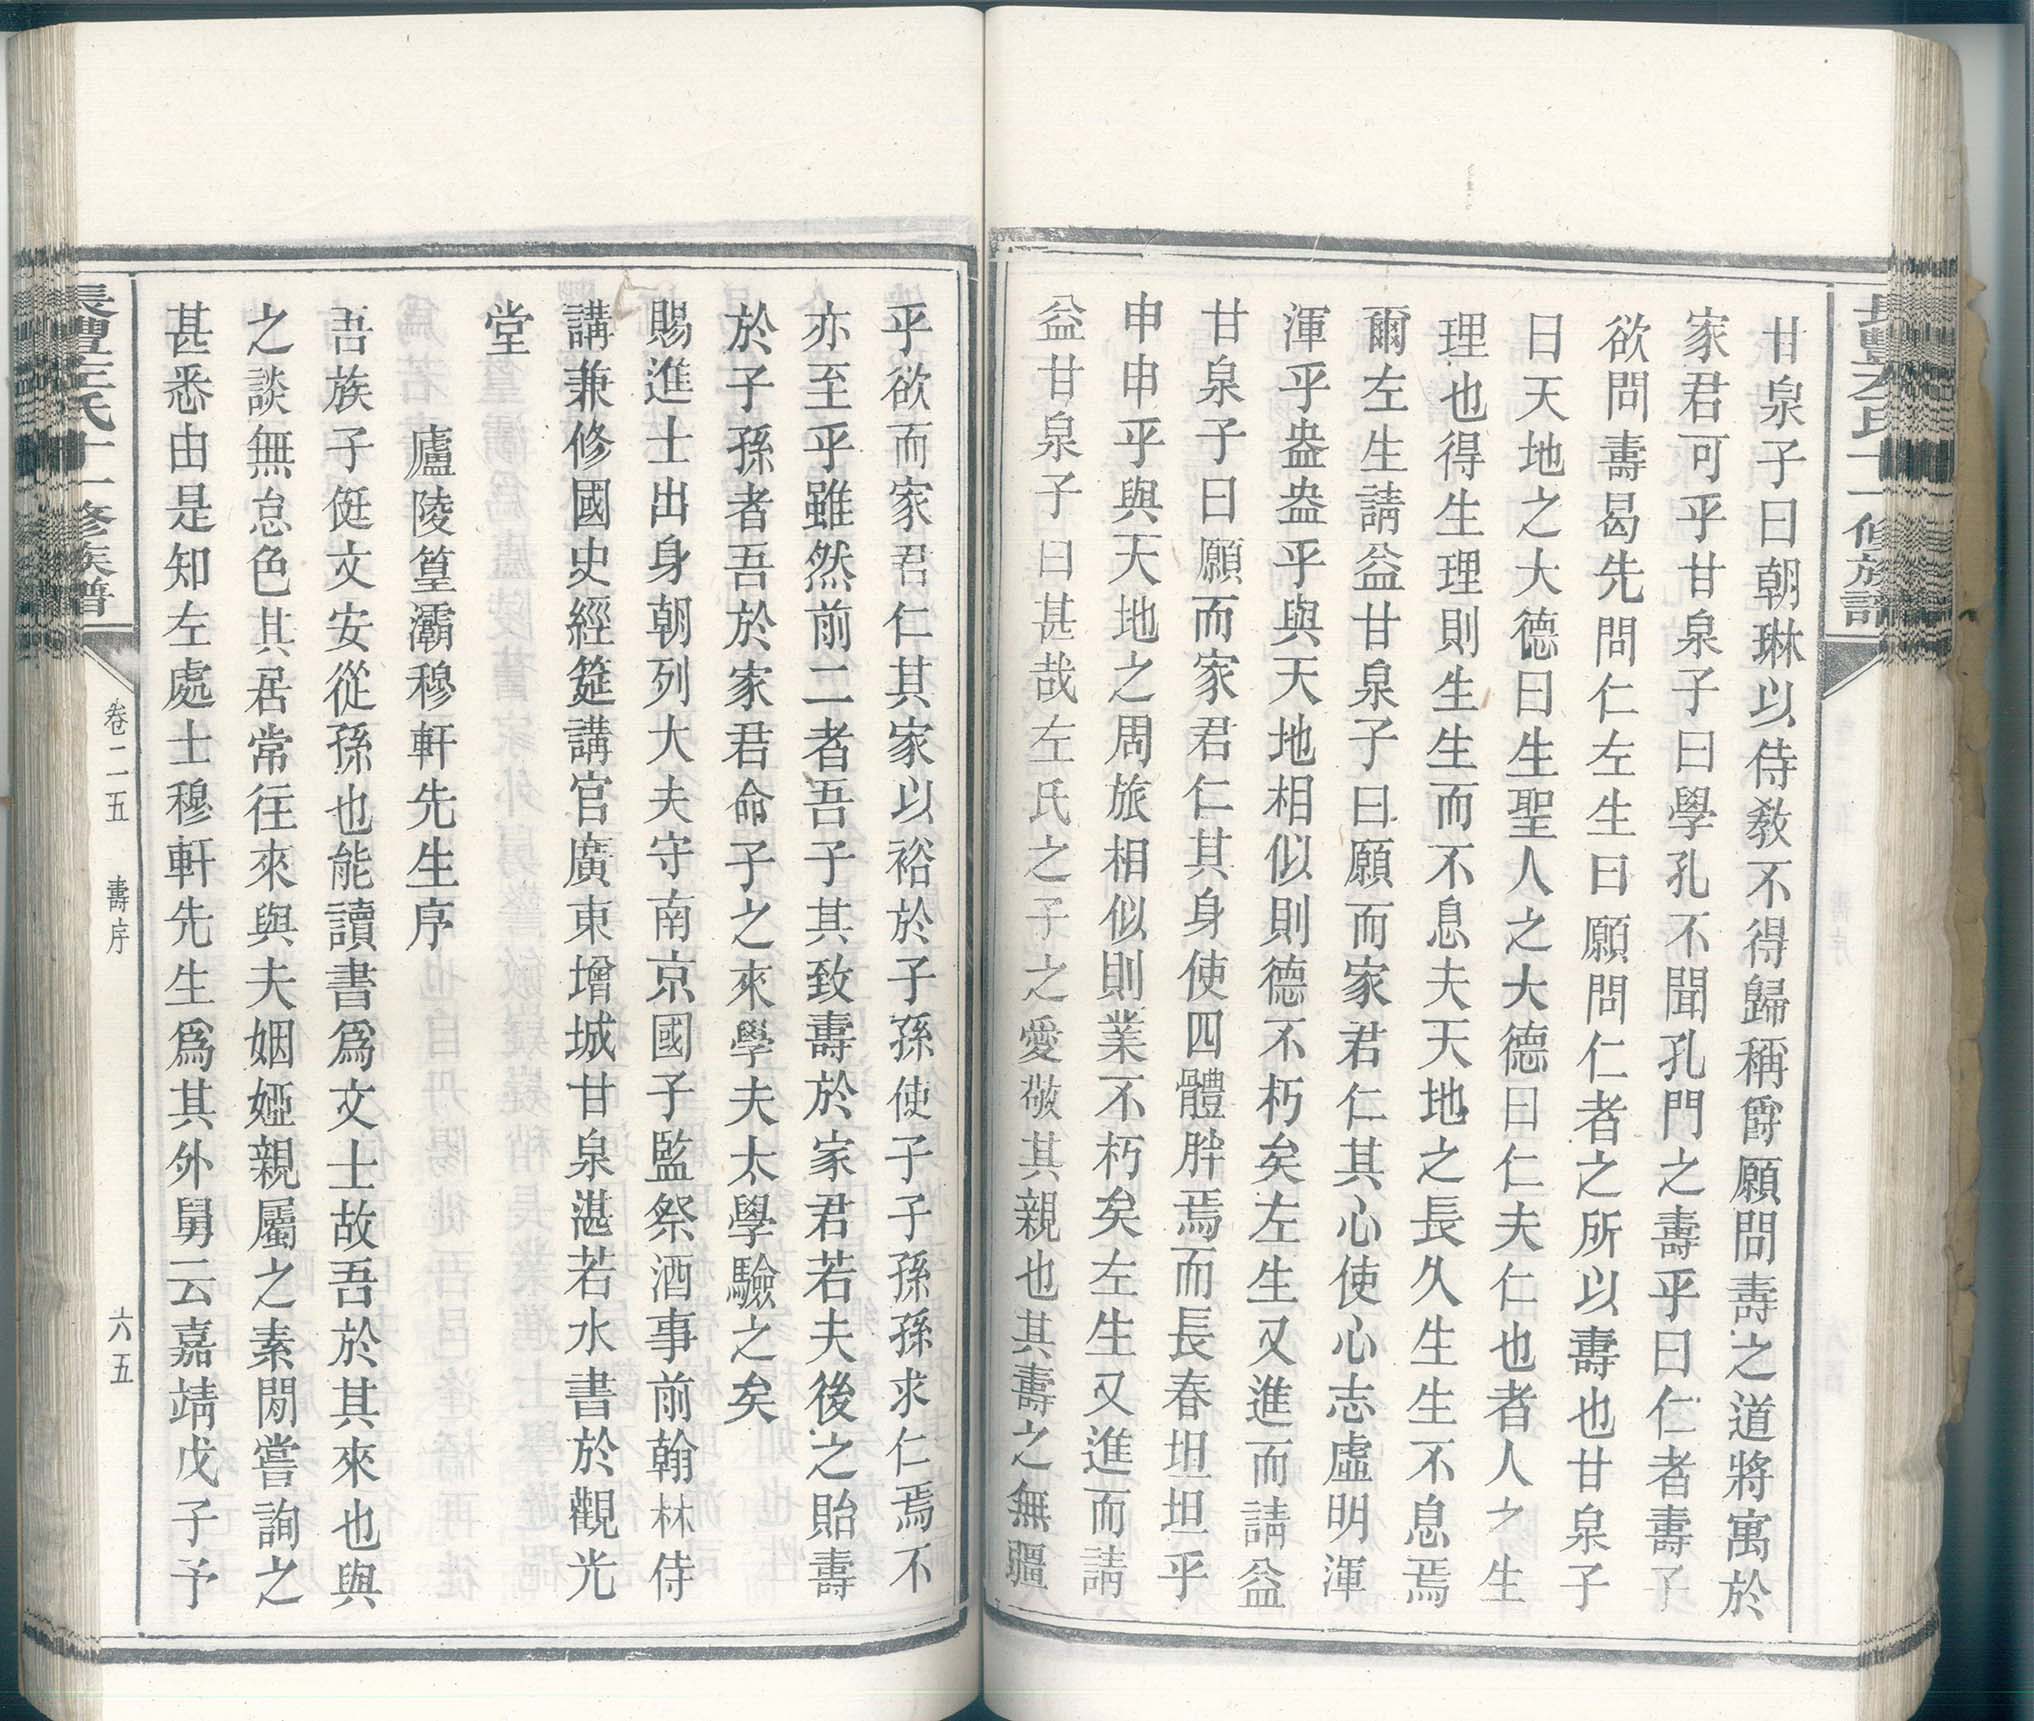 甘泉子曰朝琳以侍敎不得歸稱爵願問壽之道將寓於
家君可乎甘泉子曰學孔不聞孔門之壽乎曰仁者壽子
欲問壽曷先問仁左生曰願問仁者之所以壽也甘泉子
曰天地之大德曰生聖人之大德曰仁夫仁也者人之生
理也得生理則生生而不息夫天地之長久生生不息焉
爾左生請益甘泉子曰願而家君仁其心使心志虛明渾
渾乎盎盎乎與天地相似則德不朽矣左生又進而請益
甘泉子曰願而家君仁其身使四體胖焉而長春坦坦乎
申申乎與天地之周旅相似則業不朽矣左生又進而請
益甘泉子曰甚哉左氏之子之愛敬其親也其壽之無疆
乎欲而家君仁其家以裕於子孫使子子孫孫求仁焉不
亦至乎雖然前二者吾子其致壽於家君若夫後之貽壽
於子孫者吾於家君命子之來學夫太學驗之矣
賜進士出身朝列大夫守南京國子監祭酒事前翰林侍
講兼修國史經筵講官廣東增城甘泉湛若水書於觀光
堂
廬陵篁灞穆軒先生序
吾族子侹文安從孫也能讀書爲文士故吾於其來也與
之談無怠色其居常往來與夫姻婭親屬之素閒嘗詢之
甚悉由是知左處士穆軒先生爲其外舅云嘉靖戊子予
長豐左氏十一修族譜
卷二五 壽序
六五